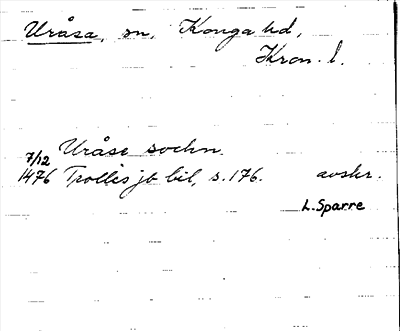 Uråsa, sn, Konga hd,
Kron. l.
Uråse sochn.
7/12
1476 Trolles jb bil, s. 176. avskr.
L. Sparre